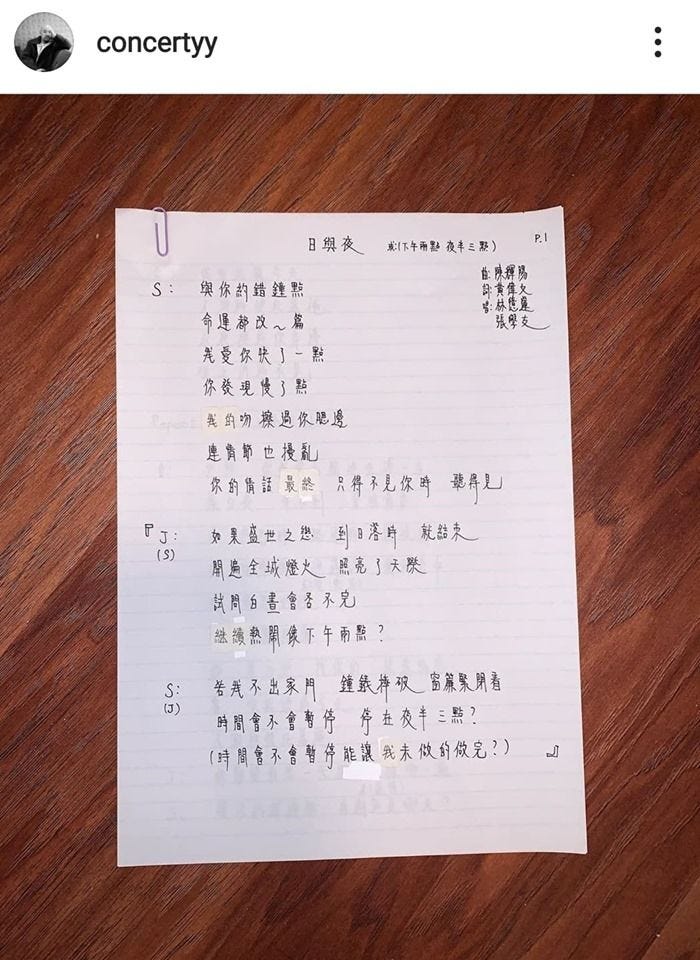 concertyy
日與夜 或:(下午兩點 夜半三點) P.1
曲:陳輝陽
詞:黃偉文
唱:林憶蓮
張學友
S: 與你約錯鐘點
命運都改~篇
我愛你快了一點
你發現慢了點
我的吻擦過你腮邊
連情節也擾亂
你的情話最終 只得不見你時 聽得見
『J: 如果盛世之戀 到日落時 就結束
(S) 開遍全城燈火 照亮了天際
試問白晝會否不完
繼續熱鬧像下午兩點?
S: 若我不出家門 鐘錶摔破 窗簾緊閉着
(J) 時間會不會暫停 停在夜半三點?
(時間會不會暫停能讓我未做的做完?) 』